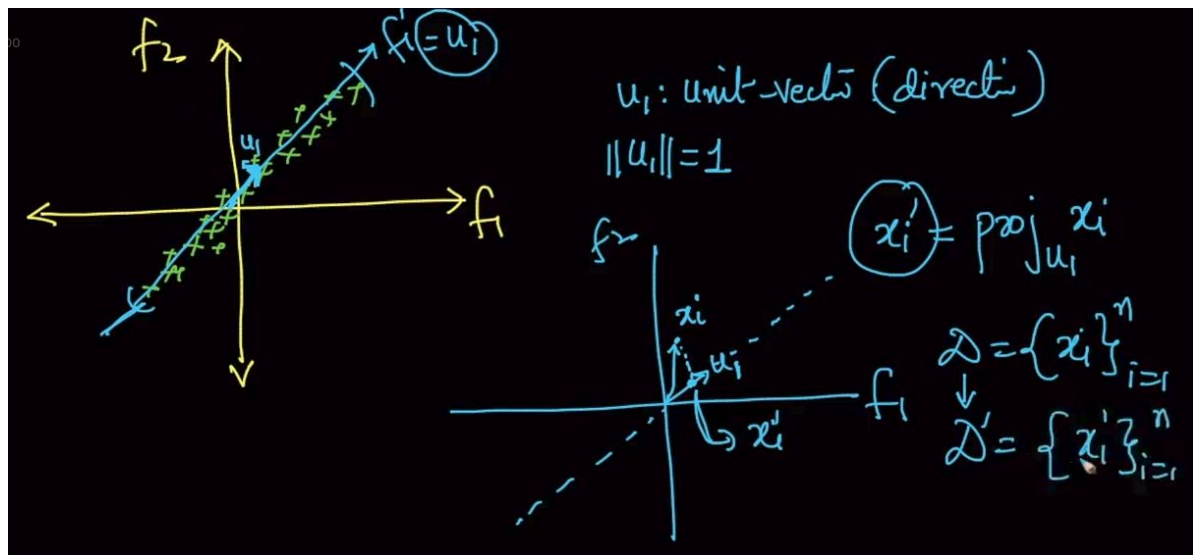 f₂
f₁' = u₁
u₁
f₁
u₁: unit-vector (directi)
||u₁|| = 1
xᵢ' = proj_u₁ xᵢ
f₂
xᵢ
u₁
f₁
xᵢ'
D = {xᵢ}ⁿᵢ₌₁
↓
D' = {xᵢ'}ⁿᵢ₌₁